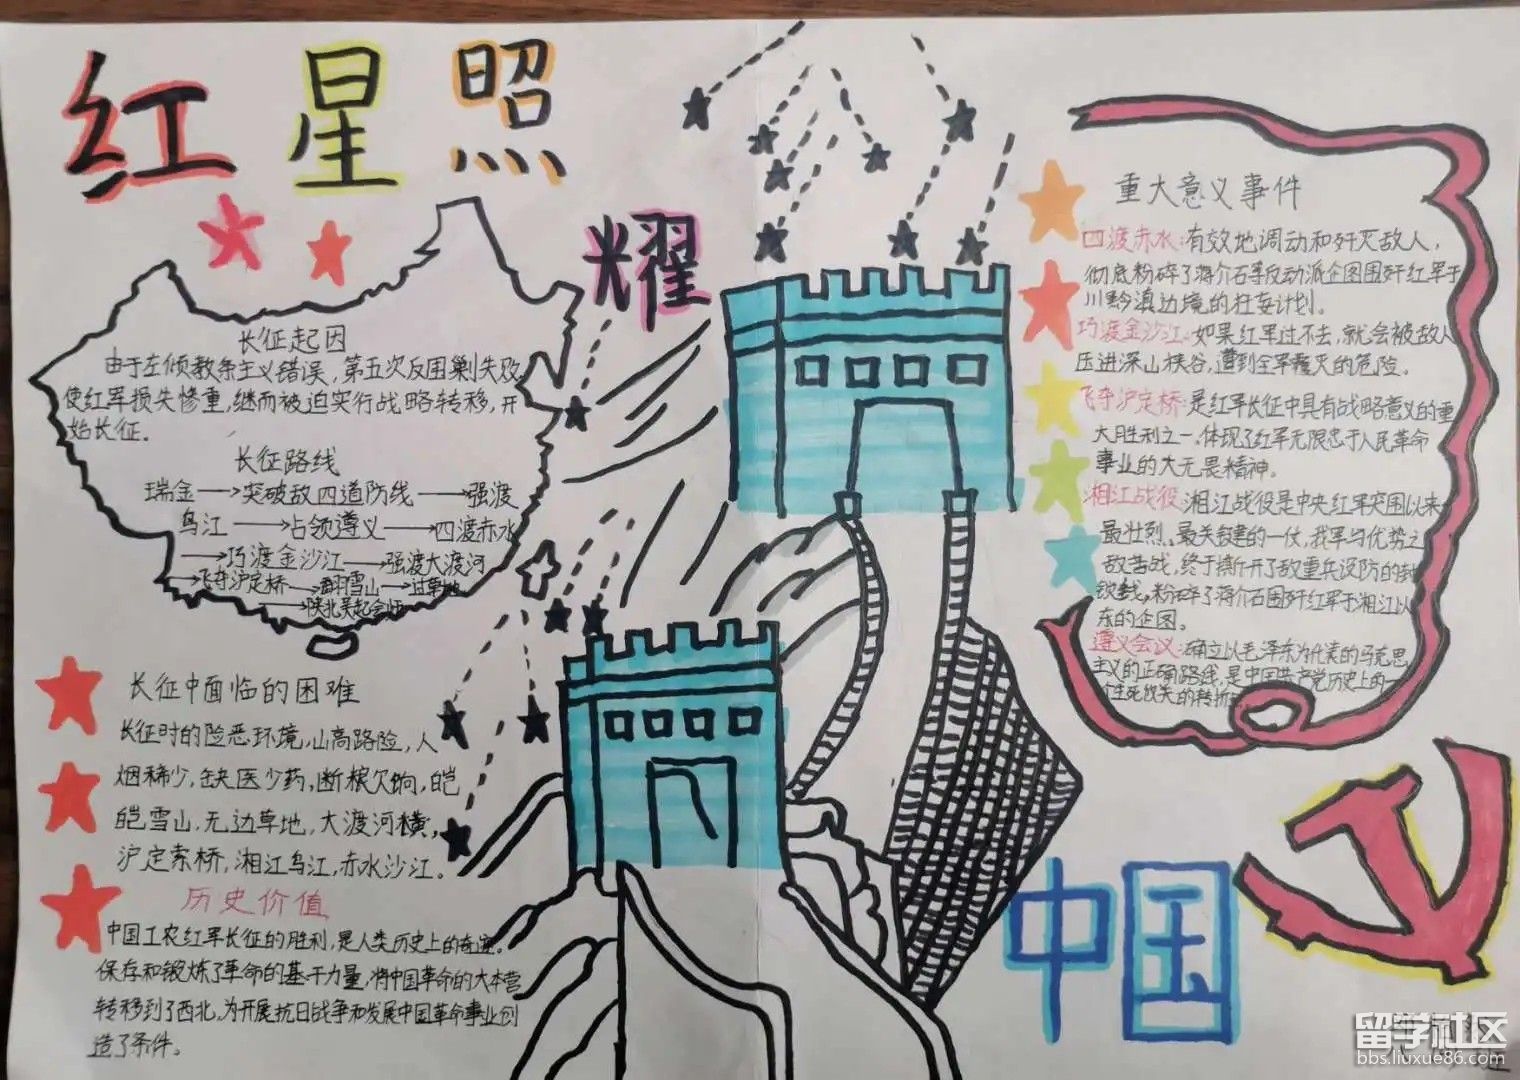 红星照
耀
中国
长征起因
由于左倾教条主义错误,第五次反围剿失败,
使红军损失惨重,继而被迫实行战略转移,开
始长征.
长征路线
瑞金→突破敌四道防线→强渡
乌江→占领遵义→四渡赤水
→巧渡金沙江→强渡大渡河
→飞夺泸定桥→翻雪山→过草地
→陕北吴起会师
长征中面临的困难
长征时的险恶环境,山高路险,人
烟稀少,缺医少药,断粮欠响,皑
皑雪山,无边草地,大渡河横,
泸定索桥,湘江乌江,赤水沙江.
历史价值
中国工农红军长征的胜利,是人类历史上的奇迹.
保存和锻炼了革命的基干力量,将中国革命的大本营
转移到了西北,为开展抗日战争和发展中国革命事业创
造了条件。
重大意义事件
四渡赤水:有效地调动和歼灭敌人,
彻底粉碎了蒋介石等反动派企图围歼红军于
川黔滇边境的狂妄计划.
巧渡金沙江:如果红军过不去,就会被敌人
压进深山峡谷,遭到全军覆灭的危险.
飞夺泸定桥:是红军长征中具有战略意义的重
大胜利之一.体现了红军无限忠于人民革命
事业的大无畏精神。
湘江战役:湘江战役是中央红军突围以来
最壮烈、最关键的一仗,我军与优势之
敌苦战,终于撕开了敌重兵设防的封
锁线,粉碎了蒋介石围歼红军于湘江以
东的企图。
遵义会议:确立以毛泽东为代表的马克思
主义的正确路线,是中国共产党历史上的一
个生死攸关的转折
留学社区
bbs.liuxue86.com